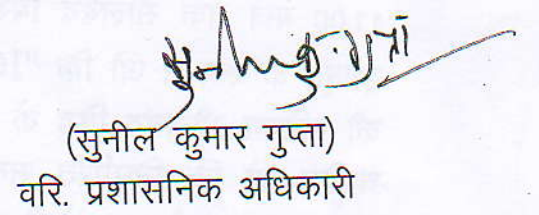 (सुनील कुमार गुप्ता)
वरि. प्रशासनिक अधिकारी